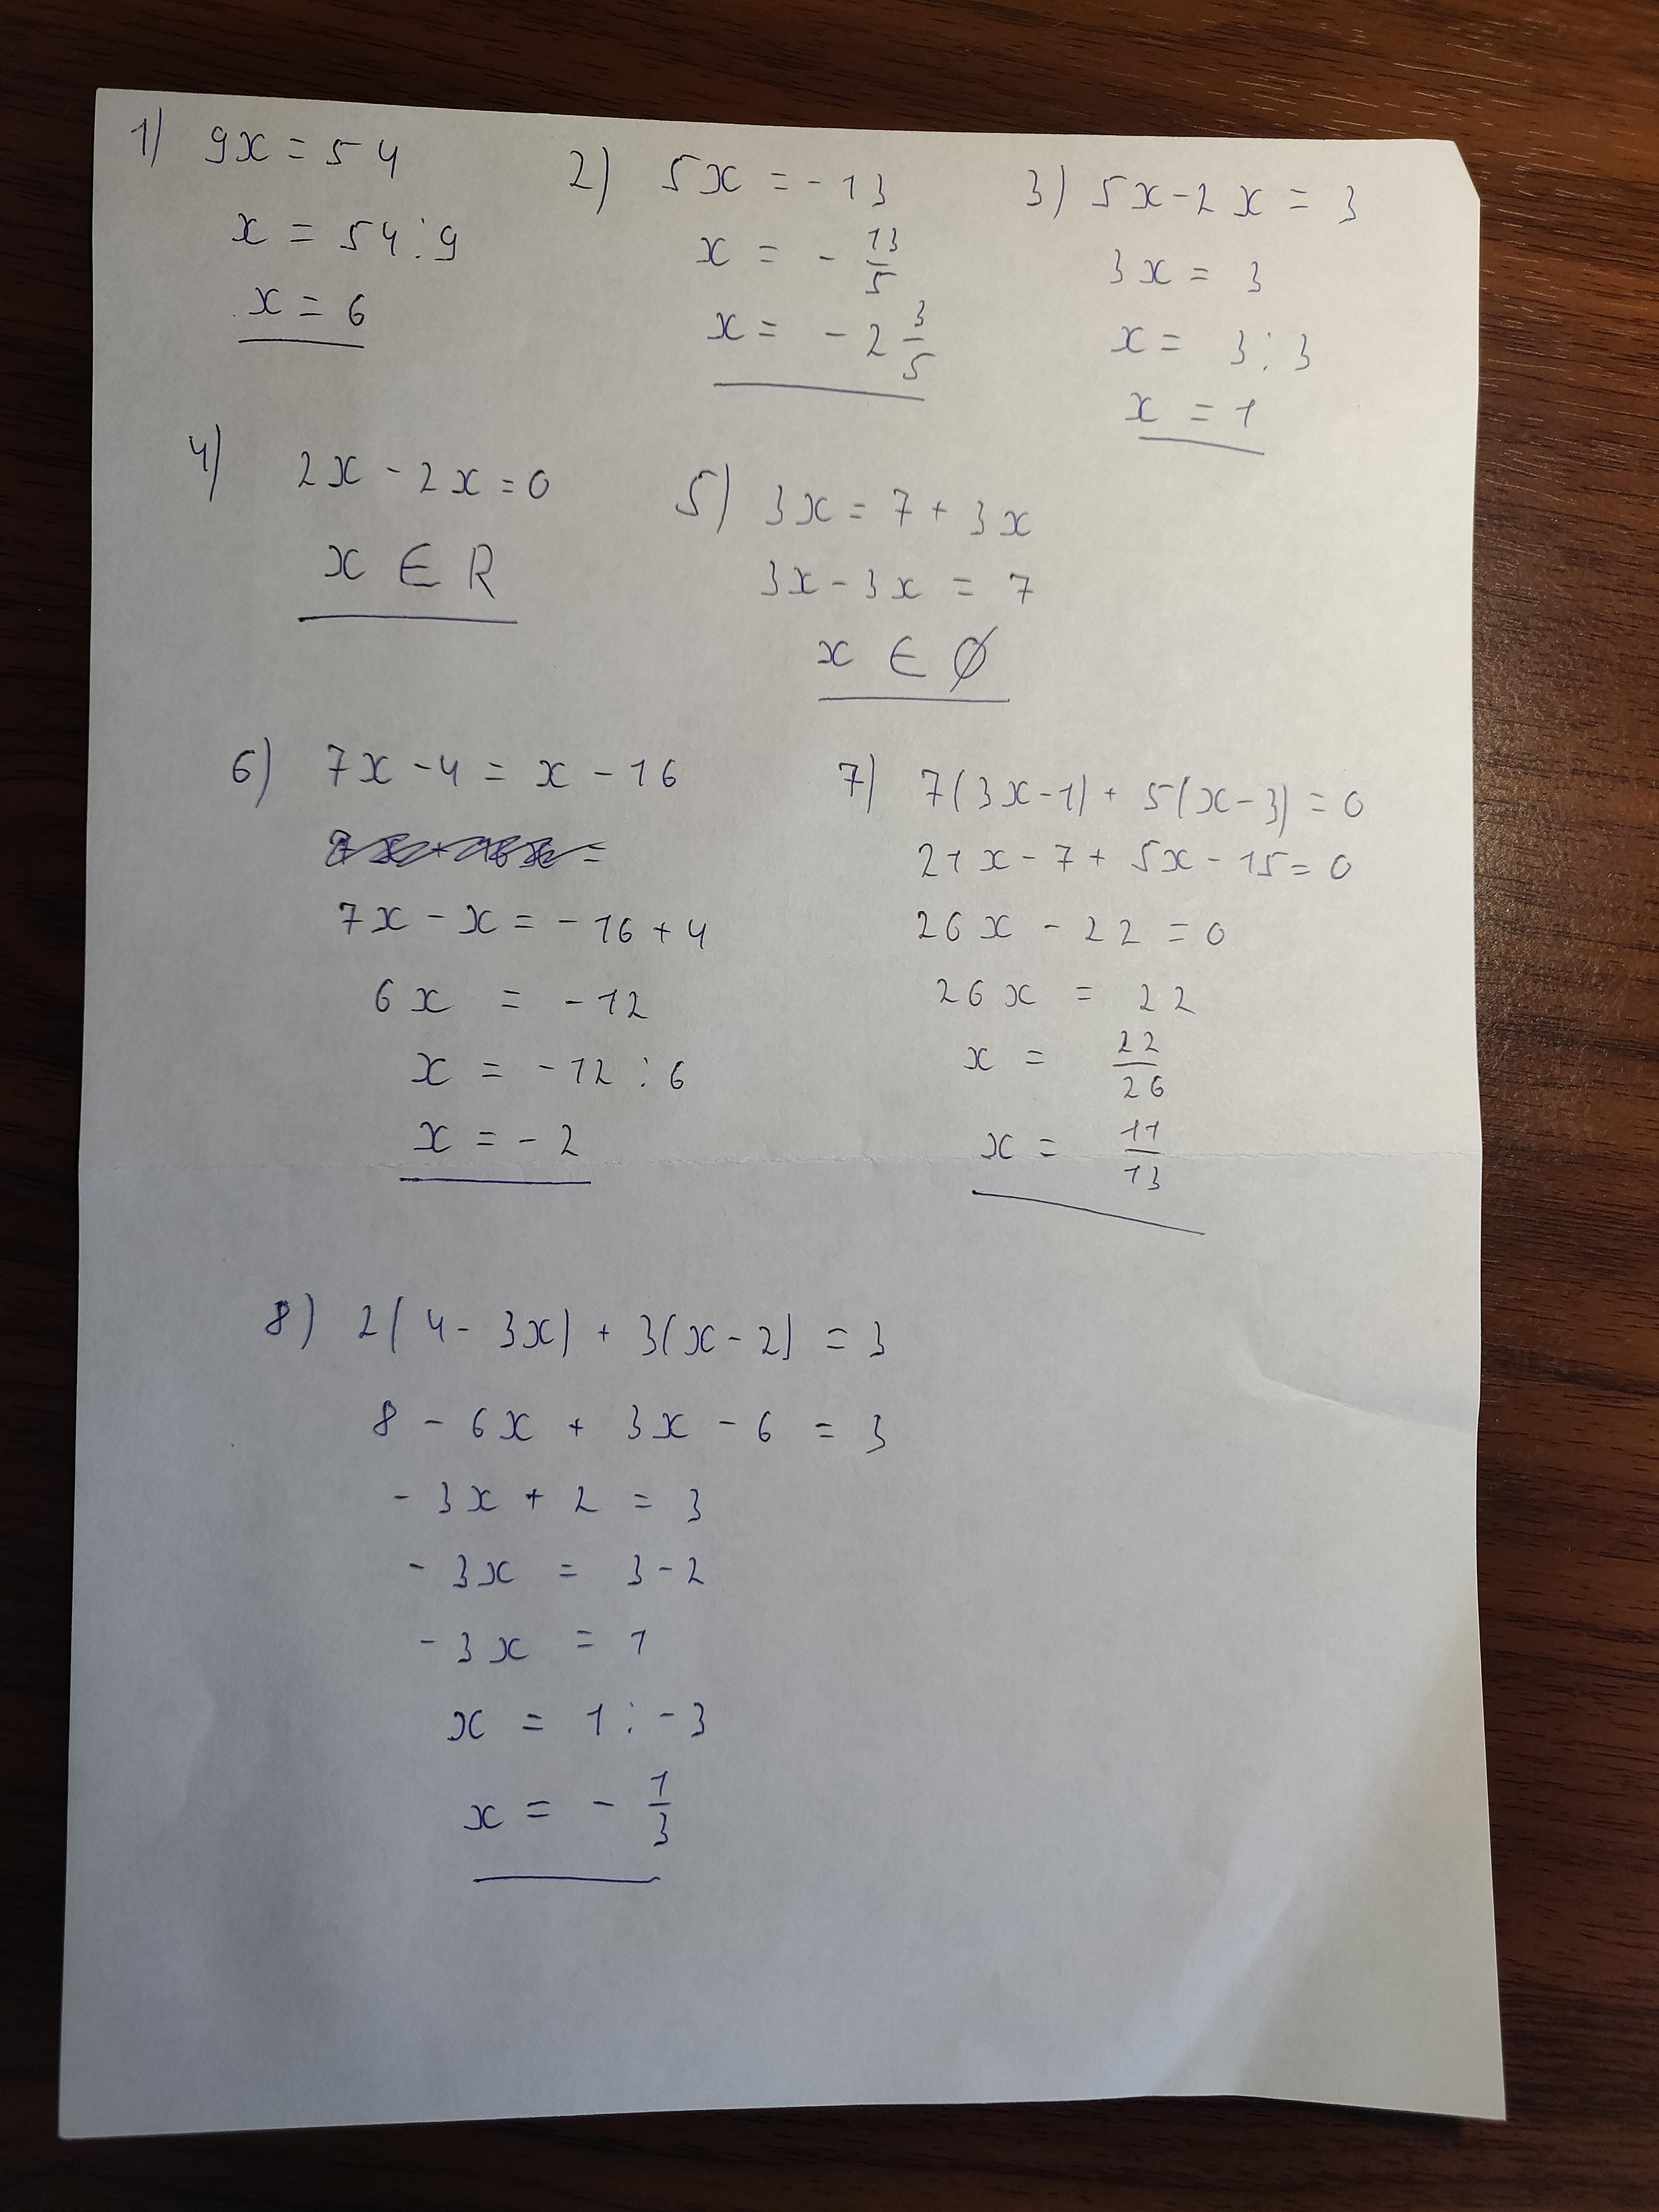 1) 9x = 54
x = 54 : 9
x = 6
2) 5x = -13
x = - 13/5
x = - 2 3/5
3) 5x - 2x = 3
3x = 3
x = 3 : 3
x = 1
4) 2x - 2x = 0
x ∈ R
5) 3x = 7 + 3x
3x - 3x = 7
x ∈ ∅
6) 7x - 4 = x - 16
7x - x = - 16 + 4
6x = - 12
x = - 12 : 6
x = - 2
7) 7(3x - 1) + 5(x - 3) = 0
21x - 7 + 5x - 15 = 0
26x - 22 = 0
26x = 22
x = 22/26
x = 11/13
8) 2(4 - 3x) + 3(x - 2) = 3
8 - 6x + 3x - 6 = 3
- 3x + 2 = 3
- 3x = 3 - 2
- 3x = 1
x = 1 : - 3
x = - 1/3